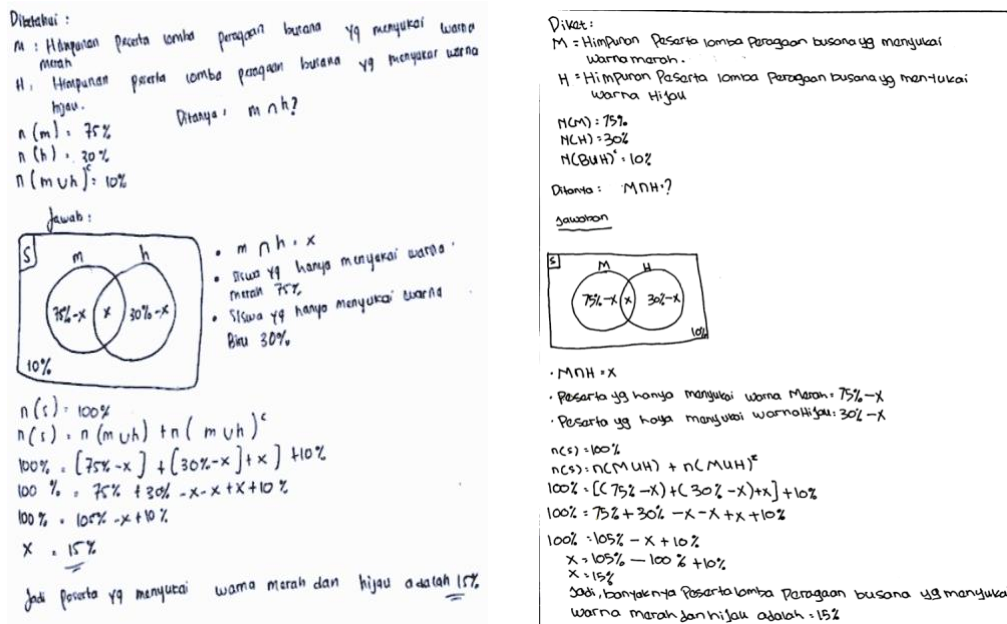 Diketahui :
m : Himpunan peserta lomba peragaan busana yg menyukai warna
merah
H : Himpunan peserta lomba peragaan busana yg menyukai warna
hijau.
n (m) : 75%
Ditanya : m ∩ h?
n (h) : 30%
n (m ∪ h)ᶜ : 10%
Jawab :
S
m h
75%-x x 30%-x
10%
• m ∩ h = x
• Siswa yg hanya menyukai warna
merah 75%
• Siswa yg hanya menyukai warna
Biru 30%
n (s) = 100%
n (s) = n (m ∪ h) + n ( m ∪ h)ᶜ
100% = [75%-x] + [30%-x] + x] +10%
100 % = 75% + 30% -x-x +x +10 %
100% = 105% -x +10 %
x = 15%
Jadi peserta yg menyukai warna merah dan hijau adalah 15%
Diket :
M = Himpunan Peserta lomba Peragaan busana yg menyukai
warna merah.
H = Himpunan Peserta lomba Peragaan busana yg men-tukai
warna Hijau
N(M) : 75%
N(H) : 30%
N(BUH)ᶜ : 10%
Ditanya : M∩H ?
Jawaban
S
M H
75%-x x 30%-x
10%
• M∩H = x
• Peserta yg hanya menyukai warna Merah = 75%-x
• Peserta yg haya menyukai warna Hijau : 30%-x
n(s) = 100%
n(s) : n(MUH) + n(MUH)ᶜ
100% = [(75%-x)+(30%-x)+x] +10%
100% = 75% + 30% -x-x +x +10%
100% = 105% - x + 10%
x = 105% - 100 % +10%
x = 15%
Jadi, banyaknya Peserta lomba Peragaan busana yg menyuka
warna merah dan hijau adalah = 15%